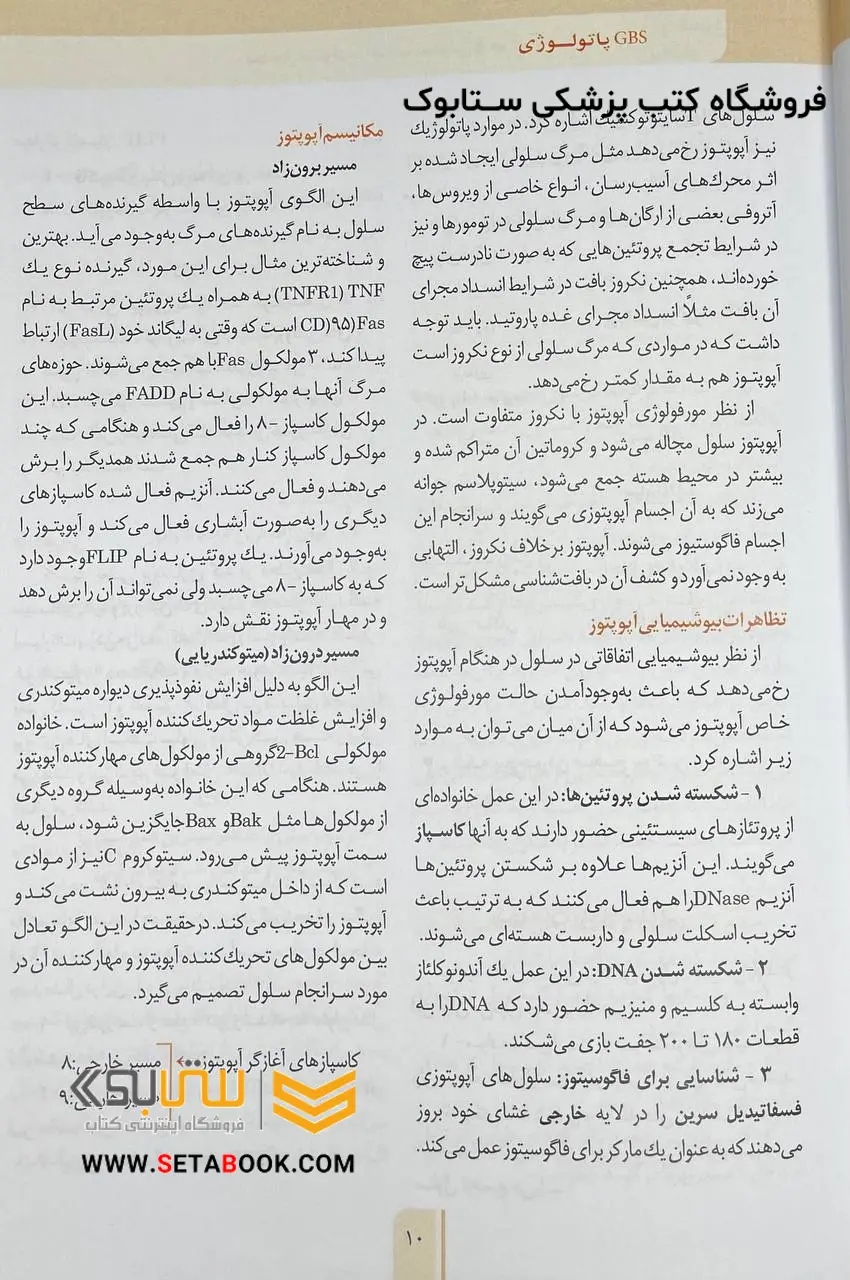 GBS پاتولـوژی
فروشگاه کتب پزشکی ستابوک
سلول‌های T سایتوتوکسیک اشاره کرد. در موارد پاتولوژیک
نیز آپوپتوز رخ می‌دهد مثل مرگ سلولی ایجاد شده بر
اثر محرک‌های آسیب‌رسان، انواع خاصی از ویروس‌ها،
آتروفی بعضی از ارگان‌ها و مرگ سلولی در تومورها و نیز
در شرایط تجمع پروتئین‌هایی که به صورت نادرست پیچ
خورده‌اند، همچنین نکروز بافت در شرایط انسداد مجرای
آن بافت مثلاً انسداد مجرای غده پاروتید. باید توجه
داشت که در مواردی که مرگ سلولی از نوع نکروز است
آپوپتوز هم به مقدار کمتر رخ می‌دهد.
از نظر مورفولوژی آپوپتوز با نکروز متفاوت است. در
آپوپتوز سلول مچاله می‌شود و کروماتین آن متراکم شده و
بیشتر در محیط هسته جمع می‌شود، سیتوپلاسم جوانه
می‌زند که به آن اجسام آپوپتوزی می‌گویند و سرانجام این
اجسام فاگوستیوز می‌شوند. آپوپتوز برخلاف نکروز، التهابی
به وجود نمی‌آورد و کشف آن در بافت‌شناسی مشکل‌تر است.
تظاهرات بیوشیمیایی آپوپتوز
از نظر بیوشیمیایی اتفاقاتی در سلول در هنگام آپوپتوز
رخ می‌دهد که باعث به‌وجودآمدن حالت مورفولوژی
خاص آپوپتوز می‌شود که از آن میان می‌توان به موارد
زیر اشاره کرد.
۱- شکسته شدن پروتئین‌ها: در این عمل خانواده‌ای
از پروتئازهای سیستئینی حضور دارند که به آنها کاسپاز
می‌گویند. این آنزیم‌ها علاوه بر شکستن پروتئین‌ها
آنزیم DNase را هم فعال می‌کنند که به ترتیب باعث
تخریب اسکلت سلولی و داربست هسته‌ای می‌شوند.
۲- شکسته شدن DNA: در این عمل یك آندونوکلئاز
وابسته به کلسیم و منیزیم حضور دارد که DNA را به
قطعات ۱۸۰ تا ۲۰۰ جفت بازی می‌شکند.
۳- شناسایی برای فاگوسیتوز: سلول‌های آپوپتوزی
فسفاتیدیل سرین را در لایه خارجی غشای خود بروز
می‌دهند که به عنوان یك مارکر برای فاگوسیتوز عمل می‌کند.
مکانیسم آپوپتوز
مسیر برون‌زاد
این الگوی آپوپتوز با واسطه گیرنده‌های سطح
سلول به نام گیرنده‌های مرگ به‌وجود می‌آید. بهترین
و شناخته‌ترین مثال برای این مورد، گیرنده نوع یك
TNF (TNFR1) به همراه یك پروتئین مرتبط به نام
Fas(CD)۹۵ است که وقتی به لیگاند خود (FasL) ارتباط
پیدا کند، ۳ مولکول Fas با هم جمع می‌شوند. حوزه‌های
مرگ آنها به مولکولی به نام FADD می‌چسبد. این
مولکول کاسپاز -۸ را فعال می‌کند و هنگامی که چند
مولکول کاسپاز کنار هم جمع شدند همدیگر را برش
می‌دهند و فعال می‌کنند. آنزیم فعال شده کاسپازهای
دیگری را به‌صورت آبشاری فعال می‌کند و آپوپتوز را
به‌وجود می‌آورند. یك پروتئین به نام FLIP وجود دارد
که به کاسپاز -۸ می‌چسبد ولی نمی‌تواند آن را برش دهد
و در مهار آپوپتوز نقش دارد.
مسیر درون‌زاد (میتوکندریایی)
این الگو به دلیل افزایش نفوذپذیری دیواره میتوکندری
و افزایش غلظت مواد تحریك‌کننده آپوپتوز است. خانواده
مولکولی Bcl-2 گروهی از مولکول‌های مهارکننده آپوپتوز
هستند. هنگامی که این خانواده به‌وسیله گروه دیگری
از مولکول‌ها مثل Bak و Bax جایگزین شود، سلول به
سمت آپوپتوز پیش می‌رود. سیتوکروم C نیز از موادی
است که از داخل میتوکندری به بیرون نشت می‌کند و
آپوپتوز را تخریب می‌کند. درحقیقت در این الگو تعادل
بین مولکول‌های تحریك‌کننده آپوپتوز و مهارکننده آن در
مورد سرانجام سلول تصمیم می‌گیرد.
کاسپازهای آغازگر آپوپتوز مسیر خارجی: ۸
خارجی: ۹
ستابوک
فروشگاه اینترنتی کتاب
WWW.SETABOOK.COM
۱۰